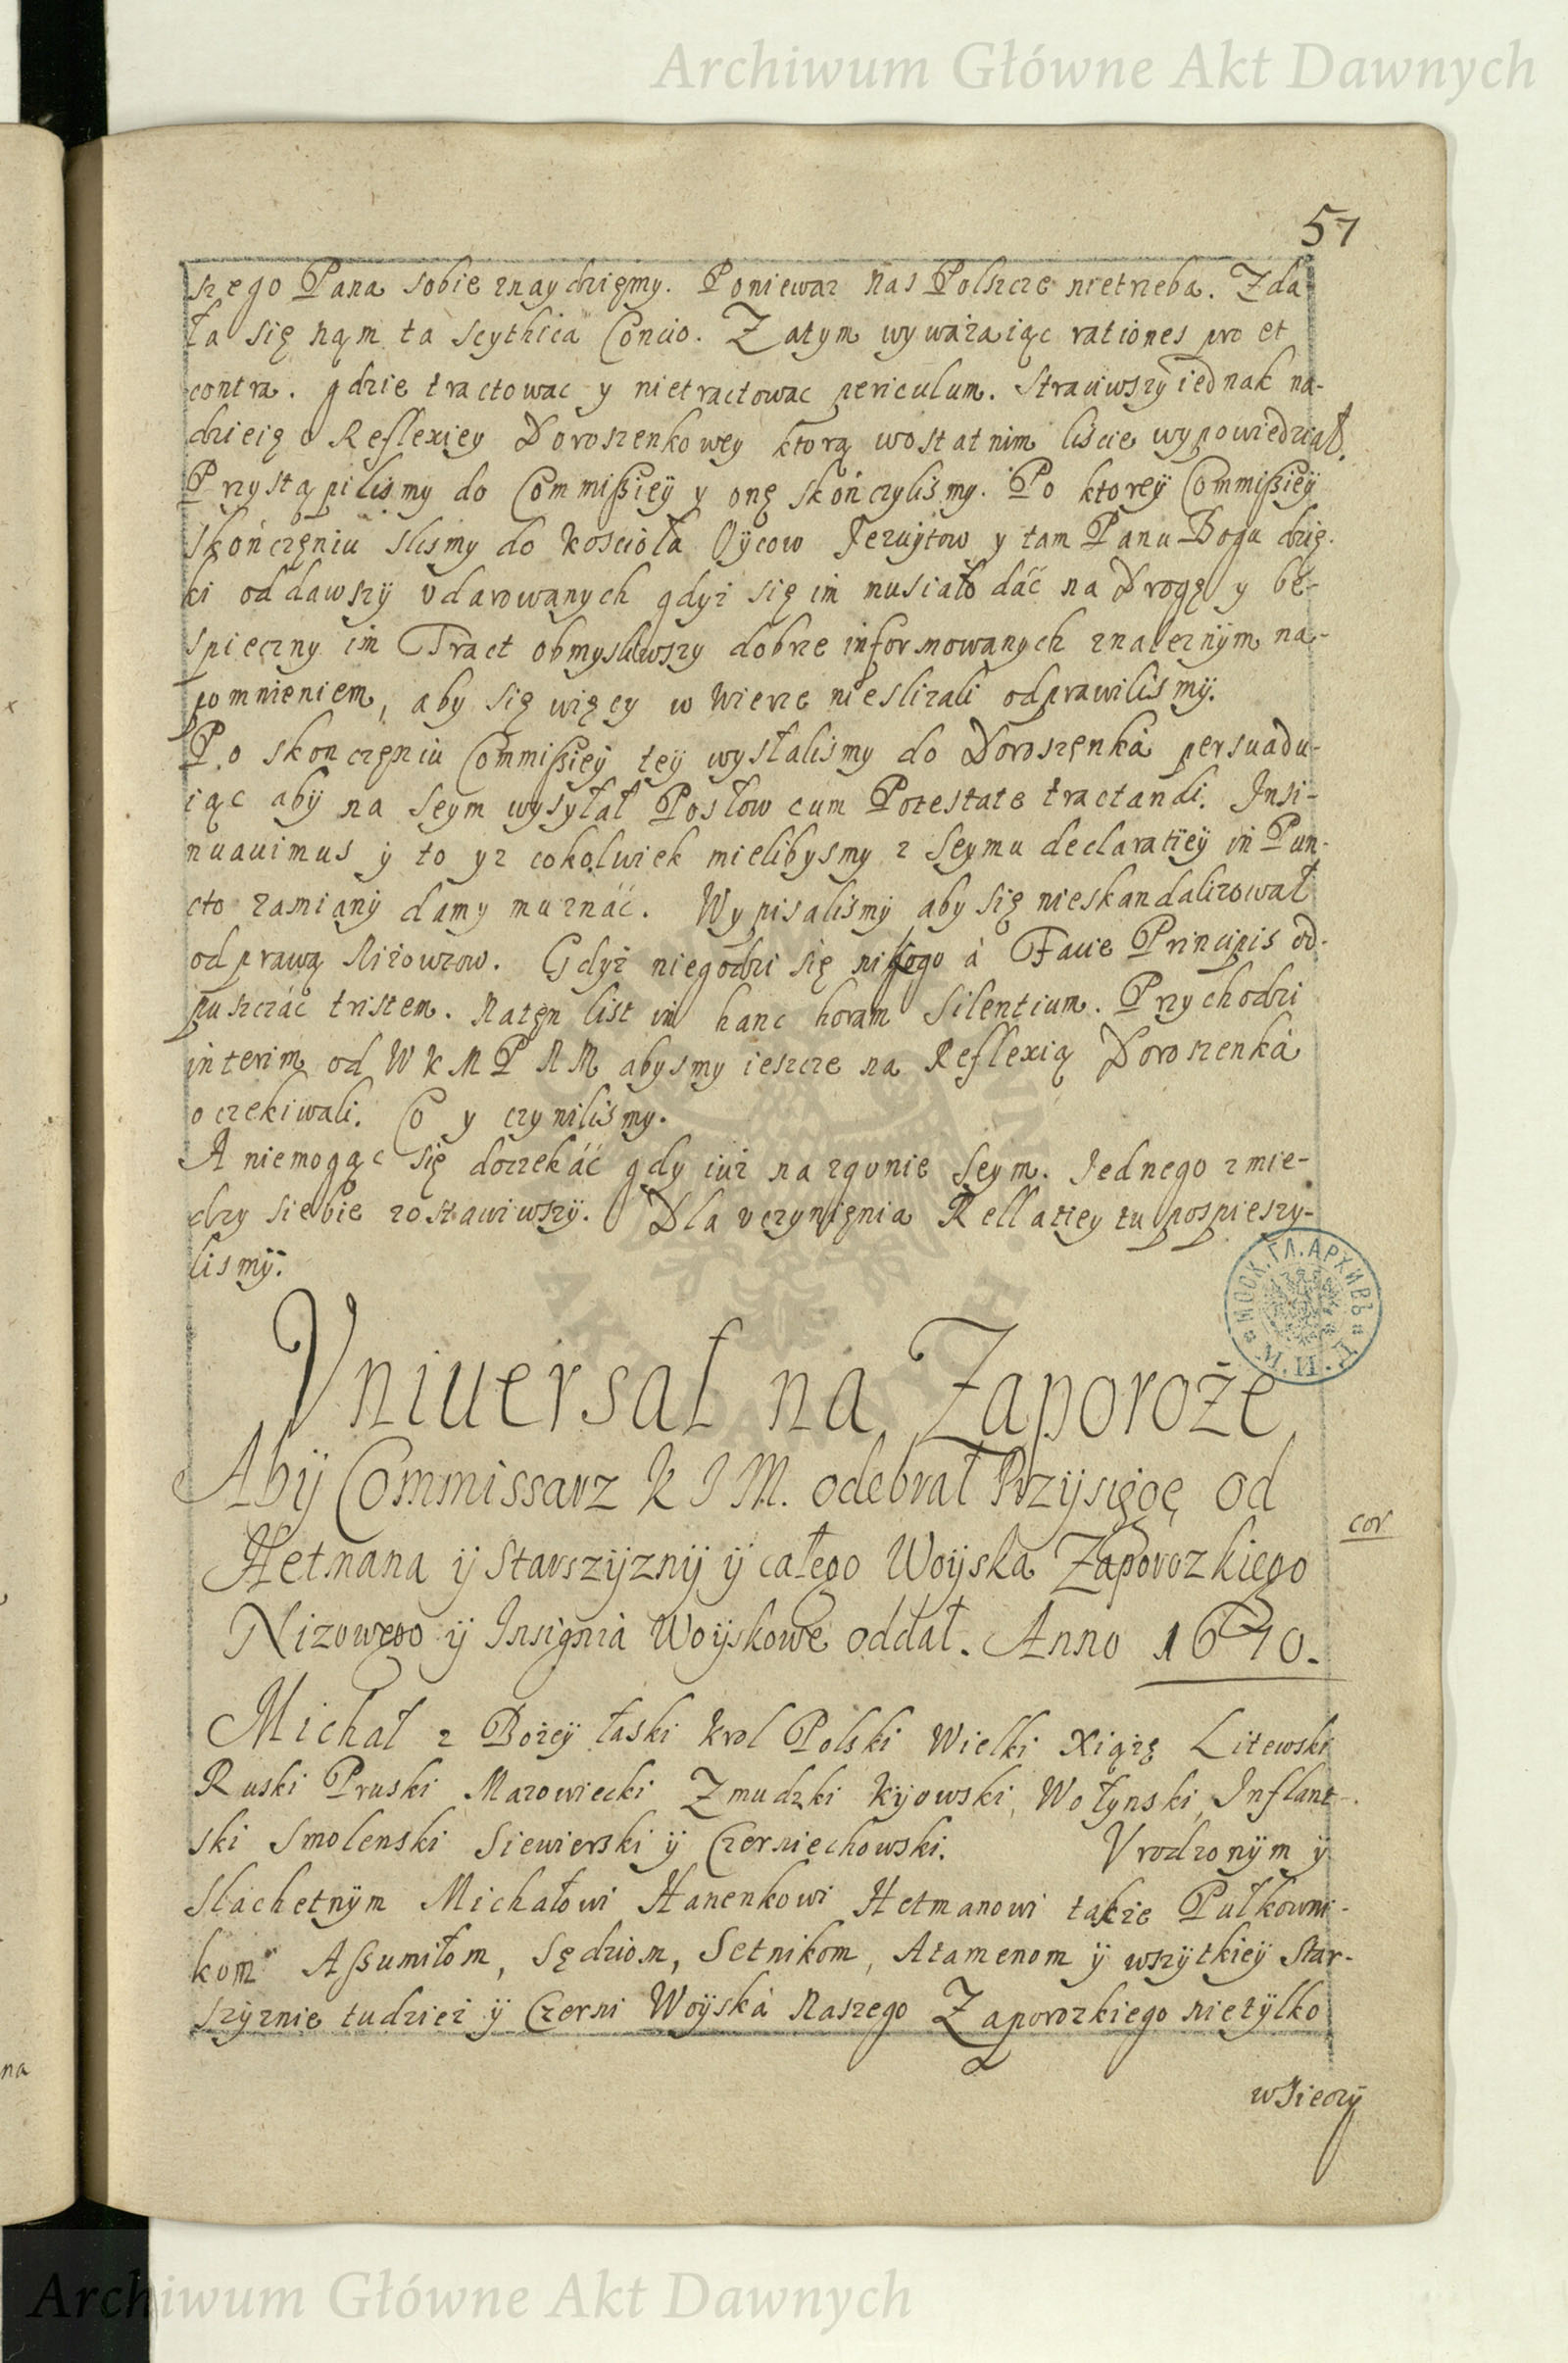 Archiwum Główne Akt Dawnych
57
szego Pana sobie znaydzięmy. Poniewaz nas Polszcze nietrzeba. Zda
ła się nąm ta scythica Concio. Zatym wyważaiąc rationes pro et
contra. gdzie tractowac y nietractowac periculum. Straciwszy iednak na-
dzieię o Reflexiey Doroszenkowey ktorą wostatnim liście wypowiedział.
Przystąpiliśmy do Commißiey y onę skończyliśmy. Po ktorey Commißiey
skończęniu slismy do Kościoła Oycow Jezuitow y tam Panu Bogu dzię-
ki oddawszy vdarowanych gdyż się im musiało dáć na Drogę y be-
spieczny im Tract obmysliwszy dobrze informowanych znależnym na-
pomnieniem, aby się więcy w Wierze nieslizali odprawilismy.
Po skonczęniu Commißiey tey wysłaliśmy do Doroszęnká persuadu-
iąc aby na Seym wysyłał Posłow cum Potestate tractandi. Insi-
nuauimus y to yz cokolwiek mielibysmy z Seymu declaratiey in Pun-
cto zamiany damy mu znáć. Wypisaliśmy aby się nieskandalizował
odprawą Niżowzow. Gdyż niegodzi się nikogo á Facie Principis od-
puszczáć tristem. Natęn list in hanc horam Silentium. Przychodzi
interim od W K M P N M abysmy ieszcze na Reflexią Doroszenká
oczekiwali. Co y czyniliśmy.
A niemogąc się doczekáć gdy iuż na zgonie Seym. Jednego zmie-
dzy siebie zostawiwszy. Dla vczynięnia Rellatiey tu pospieszy-
lismy.
МОСК. ГЛ. АРХИВЪ М. И. Д.
Vniuersał na Zaporoże
Aby Commissarz K J M. odebrał Przysięgę od
cor
Hetmana y Starszyzny y całego Woyska Zaporozkiego
Nizowego y Insignia Woyskowe oddał. Anno 1670.
Michał z Bożey łaski Krol Polski Wielki Xiążę Litewski
Ruski Pruski Mazowiecki Zmudzki Kijowski, Wołynski, Inflant-
ski Smolenski Siewierski y Czerniechowski. Vrodzonym y
Slachetnym Michałowi Hanenkowi Hetmanowi także Pułkowni-
kom Aßumiłom, Sędziom, Setnikom, Atamenom y wszytkiey Star-
szyznie tudzież y Czerni Woyská Naszego Zaporozkiego nietylko
wsieczy
Archiwum Główne Akt Dawnych